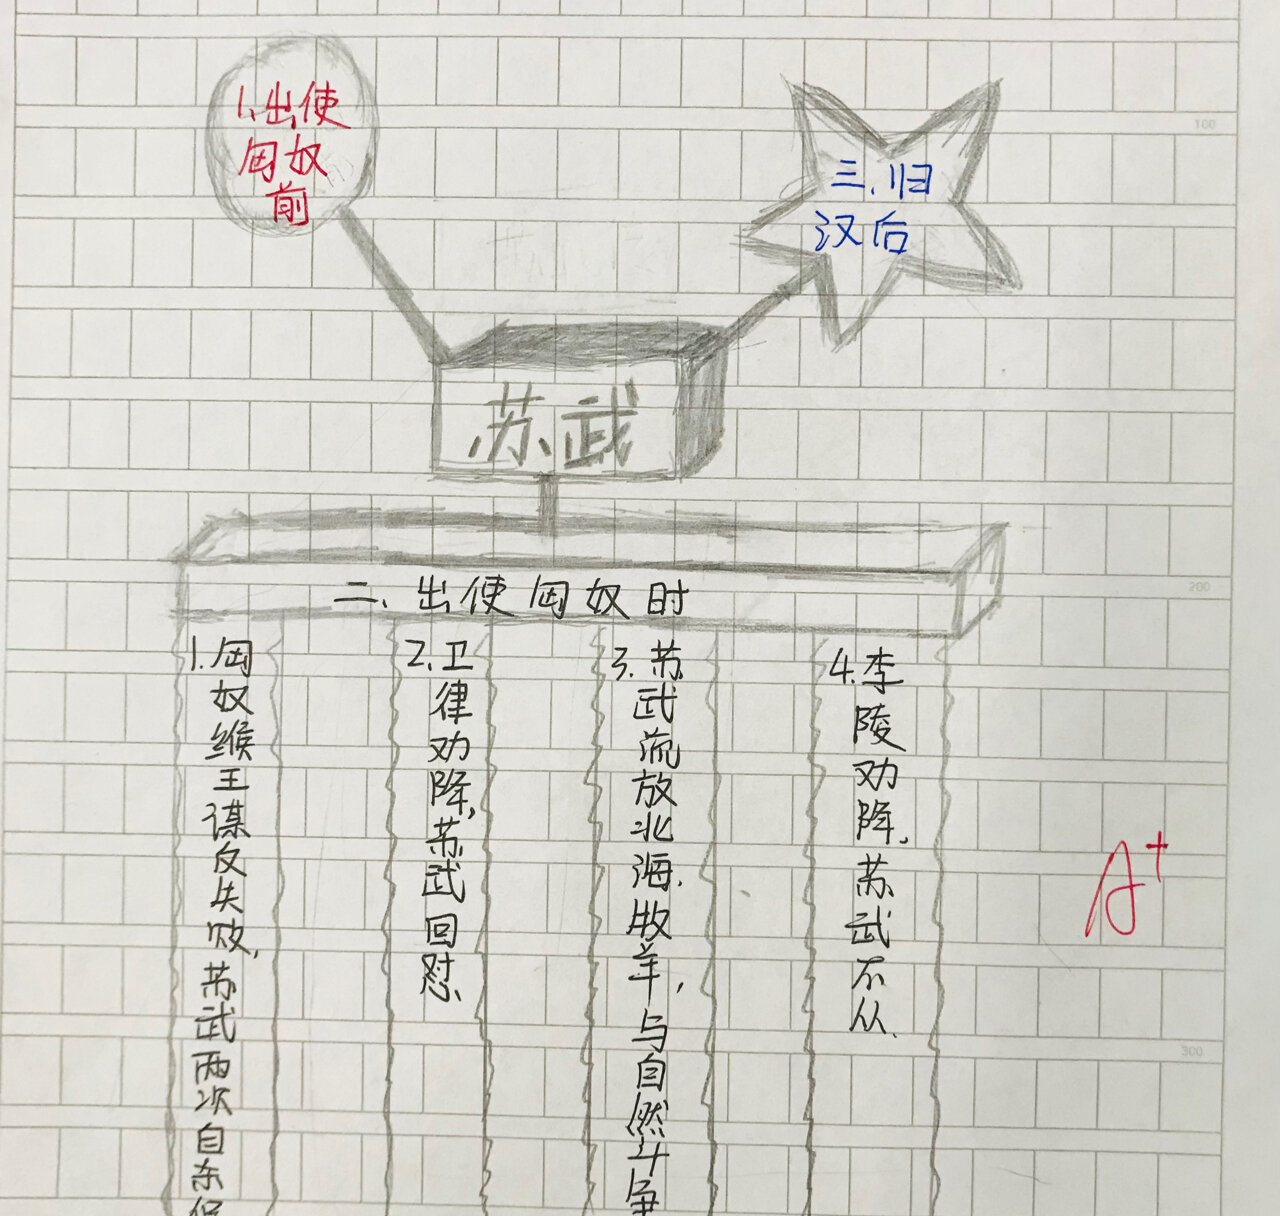 1、出使
匈奴
前
三、归
汉后
苏武
二、出使匈奴时
1.匈奴缑王谋反失败,苏武两次自杀保
2.卫律劝降,苏武回怼、
3.苏武流放北海、牧羊,与自然斗争
4.李陵劝降,苏武不从、
A+
100
200
300